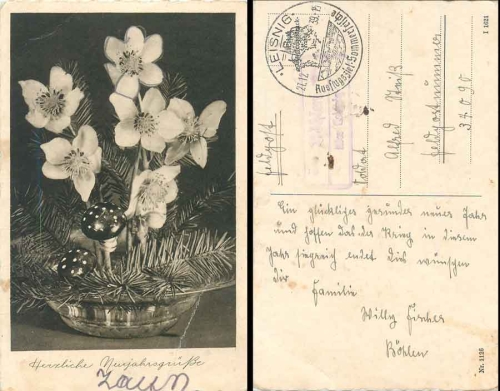 Herzliche Neujahrsgrüße
LEISNIG
Ausflugsziel · Sommerfrische
I 1621
Feldpost
Soldat
Alfred Stuß
Feldpostnummer
37090
Ein glückliches gesundes neues Jahr
und hoffen das der Krieg in diesem
Jahr siegreich endet Dies wünschen
dir
Familie
Willy Fischer
Böhlen
Nr. 1126